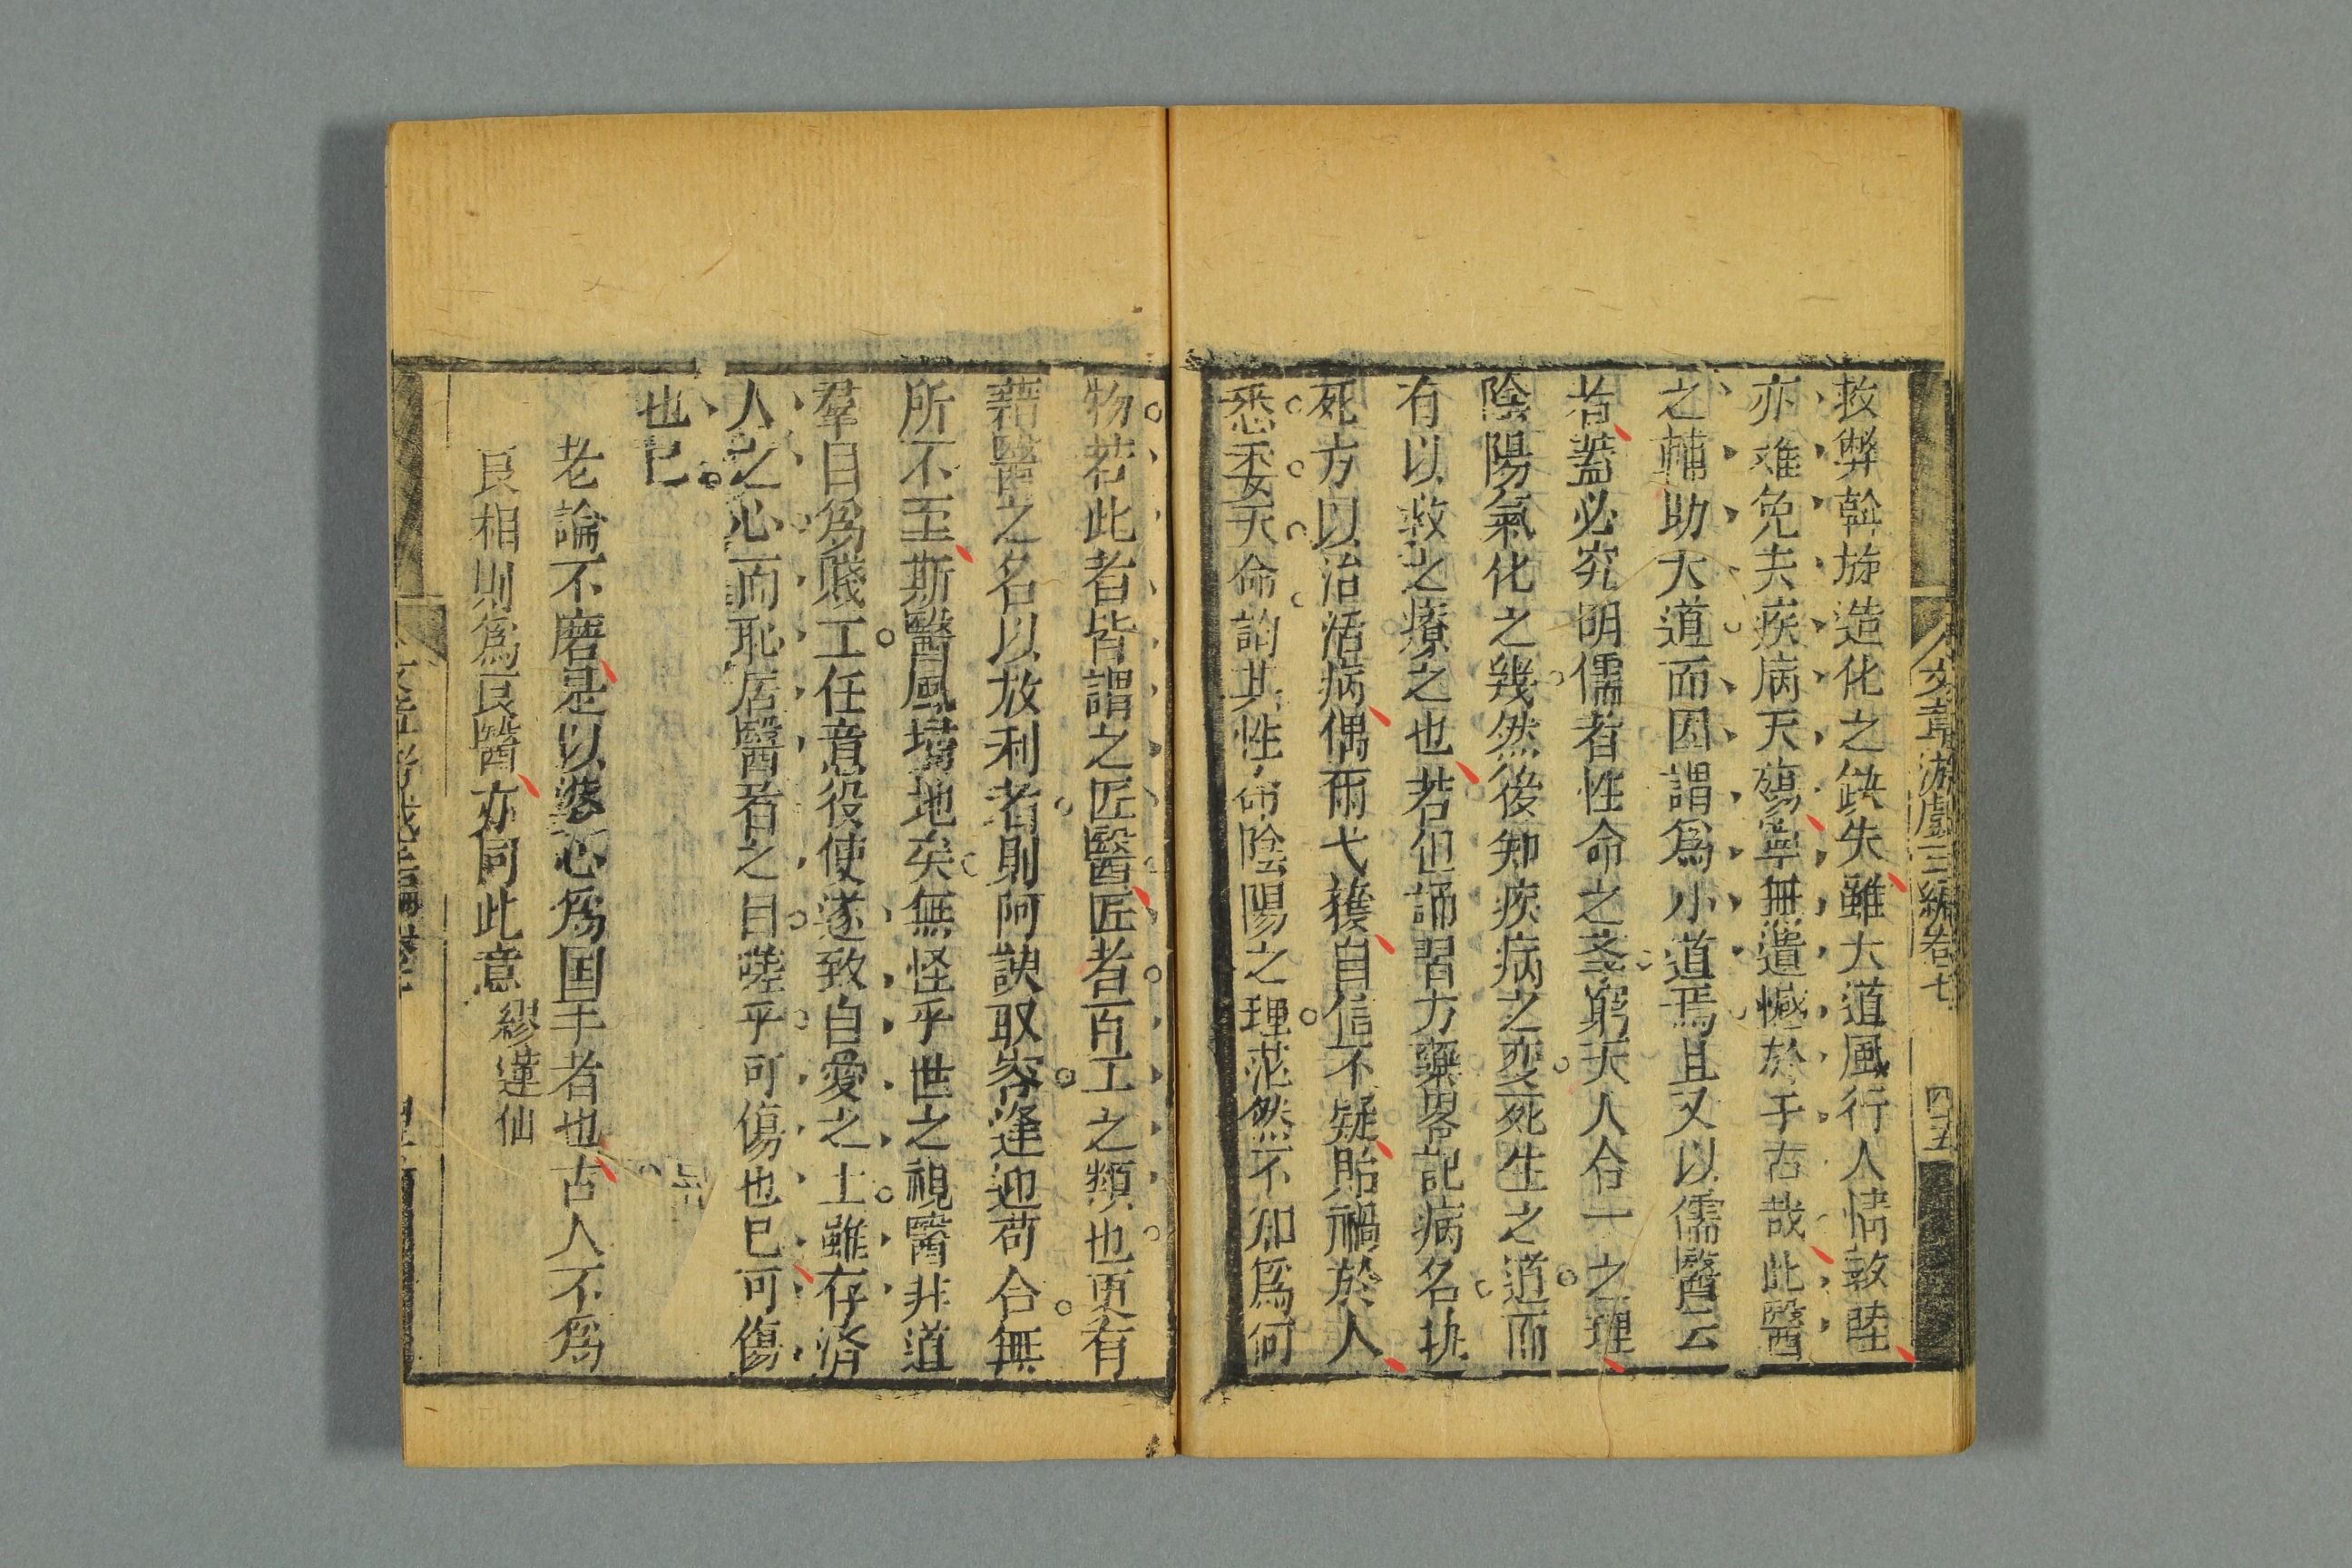 文章游戲三編卷七 四五
救弊斡旋造化之缺失雖大道風行人情敦睦
亦难免夫疾病夭殤寧無遺憾於乎古哉此醫
之輔助大道而因謂爲小道焉且又以儒醫云
者葢必究明儒者性命之㫖窮天人合一之理
陰陽氣化之幾然後知疾病之变死生之道而
有以救之療之也若但誦習方藥畧記病名执
死方以治活病偶爾弋獲自信不疑貽禍於人
悉委天命詢其性命陰陽之理茫然不知爲何
物若此者皆謂之匠醫匠者百工之類也更有
藉醫之名以放利者則阿諛取容逢迎苟合無
所不至斯醫風墑地矣無怪乎世之視醫非道
羣目爲賤工任意役使遂致自愛之士雖存済
人之心而恥居醫者之目嗟乎可傷也已可傷
也已
老論不磨是以婆心爲国手者也古人不爲
良相則爲良醫亦同此意 繆蓮仙